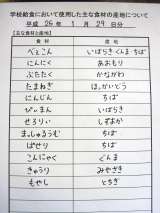 学校給食において使用した主な食材の産地について
平成 26年 1月 29日分
①主な食材と産地
食材 産地
べーこん いばらき・ぐんま・ちば
にんにく あおもり
ぶたにく かながわ
たまねぎ ほっかいどう
にんじん ちば
ぴーまん いばらき
せろりぃ しずおか
まっしゅるうむ ちば
ぱせり ちば
こんにゃく ぐんま
きゅうり みやざき
もやし とちぎ